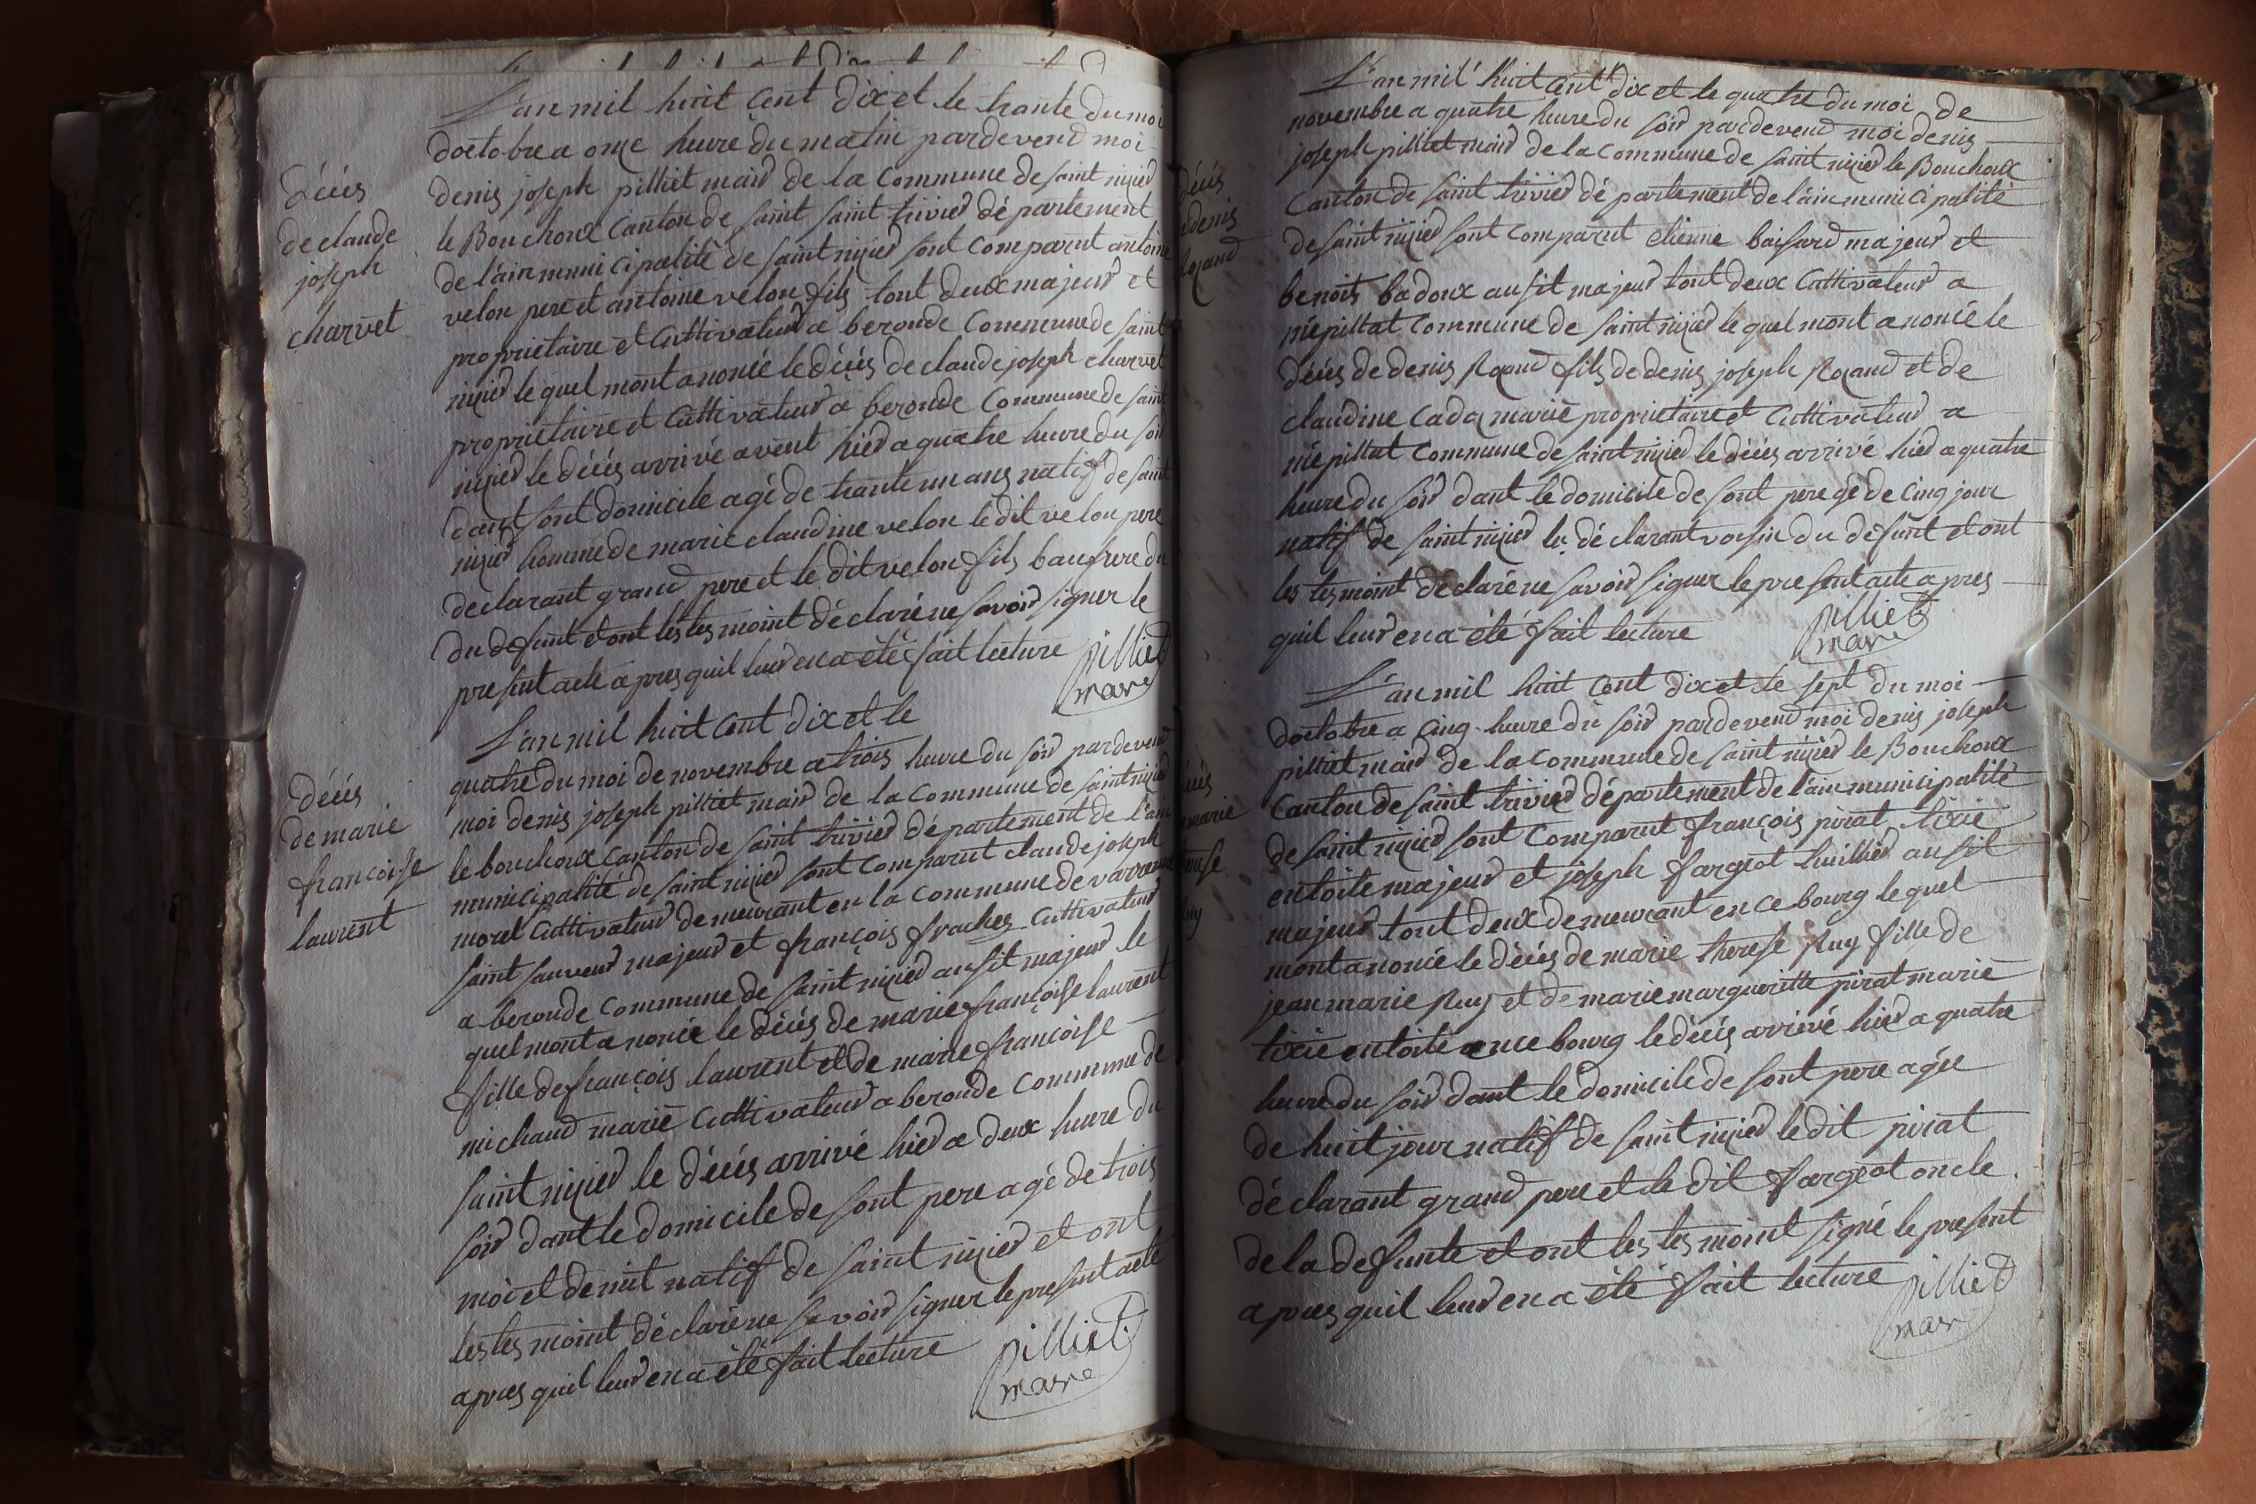 décés
de claude
joseph
charvet
L'an mil huit cent dix et le trante du moi
doctobre a onze heure du matin pardevend moi
denis joseph pilliet maire de la commune de saint nizier
le Bouchoux canton de saint saint trivier département
de l'ain municipalité de saint nizier sont comparut antoine
velon pere et antoine velon fils tout deux majeur et
proprietaire et cultivateur a beronde commune de saint
nizier le quel mont anoncé le décés de claude joseph charvet
proprietaire et cultivateur a beronde commune de saint
nizier le décés arrivé avent hier a quatre heure du soir
dant sont domicile agé de trante un ans natif de saint
nizier homme de marie claudine velon le dit velon pere
declarant grand pere et le dit velon fils baufrere du
du defunt et ont les tesmoint déclaré ne savoir signer le
present acte apres quil leur en a été fait lecture
pilliet
maire
décés
de marie
francoise
laurent
L'an mil huit cent dix et le
quatre du moi de novembre a trois heure du soir pardevend
moi denis joseph pilliet maire de la commune de saint nizier
le bouchoux canton de saint trivier département de l'ain
municipalité de saint nizier sont comparut claude joseph
morel cultivateur demeurant en la commune de varenne
saint sauveur majeur et françois fraches cultivateur
a beronde commune de saint nizier ausit majeur le
quel mont anoncé le décés de marie françoise laurent
fille de françois laurent et de marie françoise
michaud marié cultivateur a beronde commune de
saint nizier le décés arrivé hier a deux heure du
soir dant le domicile de sont pere agé de trois
moi et demit natif de saint nizier et ont
les tesmoint déclaré ne savoir signer le present acte
apres quil leur en a été fait lecture
pilliet
maire
décés
denis
Rozand
L'an mil huit cent dix et le quatre du moi de
novembre a quatre heure du soir pardevend moi denis
joseph pilliet maire de la commune de saint nizier le Bouchoux
canton de saint trivier département de l'ain municipalité
de saint nizier sont comparut etienne baisard majeur et
benoit badoux ausit majeur tout deux cultivateur a
népillat commune de saint nizier le quel mont anoncé le
décés de denis Rozand fils de denis joseph Rozand et de
claudine cadq marié proprietaire et cultivateur a
népillat commune de saint nizier le décés arrivé hier a quatre
heure du soir dant le domicile de sont pere gé de cinq jour
natif de saint nizier les déclarant voisin du defunt et ont
les tesmoint déclaré ne savoir signer le present acte apres
quil leur en a été fait lecture
pilliet
maire
marie
L'an mil huit cent dix et le sept du moi
doctobre a cinq heure du soir pardevend moi denis joseph
pilliet maire de la commune de saint nizier le Bouchoux
canton de saint trivier département de l'ain municipalité
de saint nizier sont comparut françois pirat tixié
en toile majeur et joseph fargeot huillier ausit
majeur tout deux demeurant en ce bourg le quel
mont anoncé le décés de marie therese Ruy fille de
jean marie Ruy et de marie margueritte pirat marié
tixié en toile a en ce bourg le décés arrivé hier a quatre
heure du soir dant le domicile de sont pere agée
de huit jour natif de saint nizier le dit pirat
déclarant grand pere et le dit fargeot oncle
de la defunte et ont les tesmoint signé le present
apres quil leur en a été fait lecture
pilliet
maire